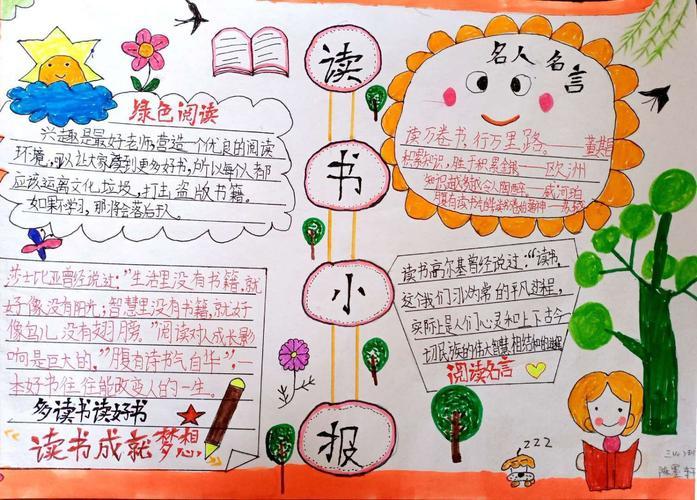 读书小报
绿色阅读
兴趣是最好老师,营造一个优良的阅读
环境,可以让大家读到更多好书,所以每个人都
应该远离文化垃圾,打击盗版书籍。
如果不学习,那将会落后于人。
名人名言
读万卷书,行万里路。
积累知识,胜于积累金银——欧洲
莎士比亚曾经说过:"生活里没有书籍,就
好像没有阳光;智慧里没有书籍,就好
像鸟儿没有翅膀。"阅读对人成长影
响是巨大的,"腹有诗书气自华",一
本好书往往能改变人的一生。
多读书读好书
读书成就梦想
读书高尔基曾经说过:"读书,
这个我们习以为常的平凡过程,
实际上是人们心灵和上下古今
一切民族的伟大智慧相结合的过程
阅读名言
zzz